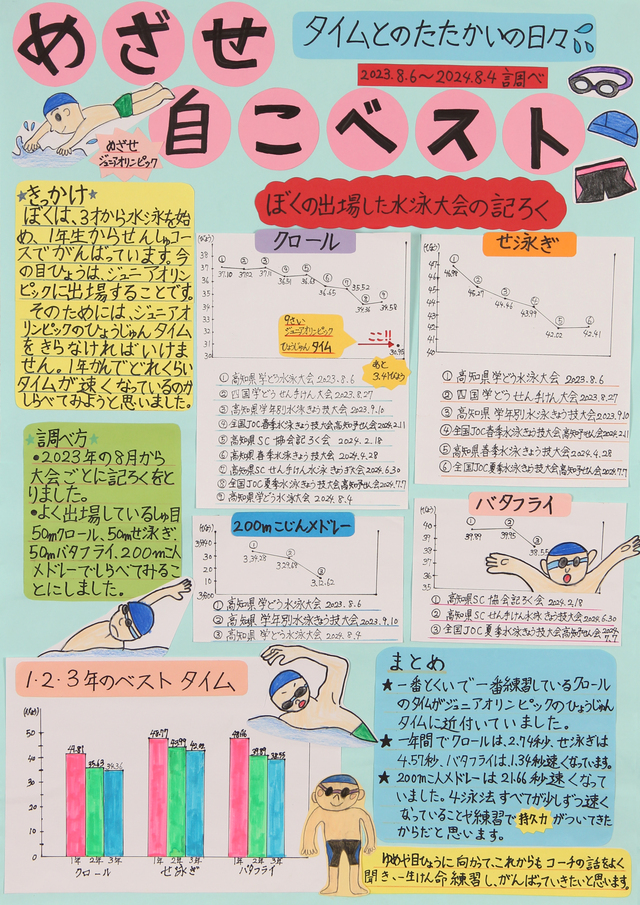 めざせ
自こベスト
タイムとのたたかいの日々
2023.8.6～2024.8.4 調べ
めざせ
ジュニアオリンピック
きっかけ
ぼくは、3才から水泳を始
め、1年生からせんしゅコー
スでがんばっています。今
の目ひょうは、ジュニアオリン
ピックに出場することです。
そのためには、ジュニアオ
リンピックのひょうじゅんタイム
をきらなければいけま
せん。1年かんでどれくらい
タイムが速くなっているのか
しらべてみようと思いました。
調べ方
●2023年の8月から
大会ごとに記ろくをと
りました。
●よく出場しているしゅ目
50mクロール、50mせ泳ぎ、
50mバタフライ、200m個人
メドレーでしらべてみるこ
とにしました。
ぼくの出場した水泳大会の記ろく
クロール
(びょう)
38
37
36
35
34
33
32
31
30
① ② ③ ④ ⑤ ⑥ ⑦ ⑧ ⑨
37.10 37.02 37.11 36.51 36.63 36.65 35.52 34.36 34.58
9さい
ジュニアオリンピック
ひょうじゅんタイム
ここ!!
30.95
あと
3.41びょう
①高知県学どう水泳大会 2023.8.6
②四国学どうせん手けん大会 2023.8.27
③高知県学年別水泳きょう技大会 2023.9.10
④全国JOC春季水泳きょう技大会高知予せん会 2024.2.11
⑤高知県SC協会記ろく会 2024.2.18
⑥高知県春季水泳きょう技大会 2024.4.28
⑦高知県SCせん手けん水泳きょうぎ大会 2024.6.30
⑧全国JOC夏季水泳きょう技大会高知予せん会 2024.7.7
⑨高知県学どう水泳大会 2024.8.4
せ泳ぎ
(びょう)
47
46
45
44
43
42
41
40
① ② ③ ④ ⑤ ⑥
46.98 45.27 44.46 43.99 42.02 42.41
①高知県学どう水泳大会 2023.8.6
②四国学どうせん手けん大会 2023.8.27
③高知県学年別水泳きょう技大会 2023.9.10
④全国JOC春季水泳きょう技大会高知予せん会 2024.2.11
⑤高知県春季水泳きょう技大会 2024.4.28
⑥全国JOC夏季水泳きょう技大会高知予せん会 2024.7.7
200mこじんメドレー
① ② ③
3.34.28 3.29.69 3.12.62
①高知県学どう水泳大会 2023.8.6
②高知県学年別水泳きょう技大会 2023.9.10
③高知県学どう水泳大会 2024.8.4
バタフライ
(びょう)
40
39
38
37
36
35
① ② ③
39.89 39.95 38.55
①高知県SC協会記ろく会 2024.2.18
②高知県SCせん手けん水泳きょう技大会 2024.6.30
③全国JOC夏季水泳きょう技大会高知予せん会 2024.7.7
1・2・3年のベストタイム
(びょう)
50
40
30
20
10
0
41.81 35.63 34.36
48.77 43.99 42.02
48.06 39.89 38.55
1年 2年 3年 1年 2年 3年 1年 2年 3年
クロール せ泳ぎ バタフライ
まとめ
★一番とくいで一番練習しているクロール
のタイムがジュニアオリンピックのひょうじゅん
タイムに近付いていました。
★一年間でクロールは、2.74秒、せ泳ぎは
4.57秒、バタフライは、1.34秒速くなっています。
★200m個人メドレーは21.66秒速くなって
いました。4泳法すべてが少しずつ速く
なっていることや練習で持久力がついてきた
からだと思います。
ゆめや目ひょうに向かって、これからもコーチの話をよく
聞き、一生けん命練習し、がんばっていきたいと思います。